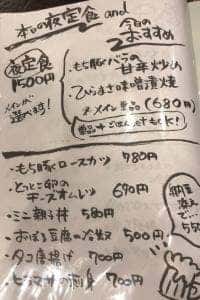 本日の夜定食 and
今日のおすすめ
夜定食
1500円
メインが
選べます!
・もち豚バラの甘辛炒め
・ひらまさ味噌漬焼
メイン単品(680円)
単品+ごはんせもOK!
・もち豚ロースカツ 780円
・とっとこ卵の
チーズオムレツ 690円
・ミニ親子丼 580円
・おぼろ豆腐の冷奴 500円
・タコ唐揚げ 700円
・ヒラマサの刺身 700円